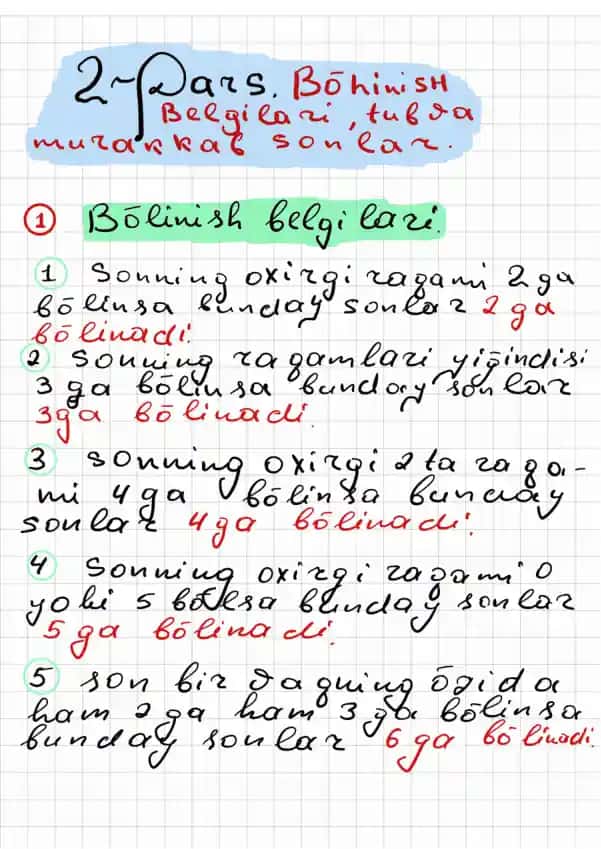 2-Dars. Bōlinish
Belgilari, tub va
murakkab sonlar.
1 Bōlinish belgilari.
1 Sonning oxirgi raqami 2 ga
bōlinsa bunday sonlar 2 ga
bōlinadi.
2 Sonning raqamlari yiğindisi
3 ga bōlinsa bunday sonlar
3ga bōlinadi.
3 Sonning oxirgi 2 ta raqa-
mi 4 ga bōlinsa bunday
sonlar 4 ga bōlinadi.
4 Sonning oxirgi raqami 0
yoki 5 bōlsa bunday sonlar
5 ga bōlinadi.
5 son bir vaqning ōzida
ham 2 ga ham 3 ga bōlinsa
bunday sonlar 6 ga bōlinadi.